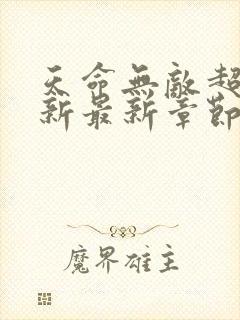 天命無敵超
新最新章節
魔界雄主